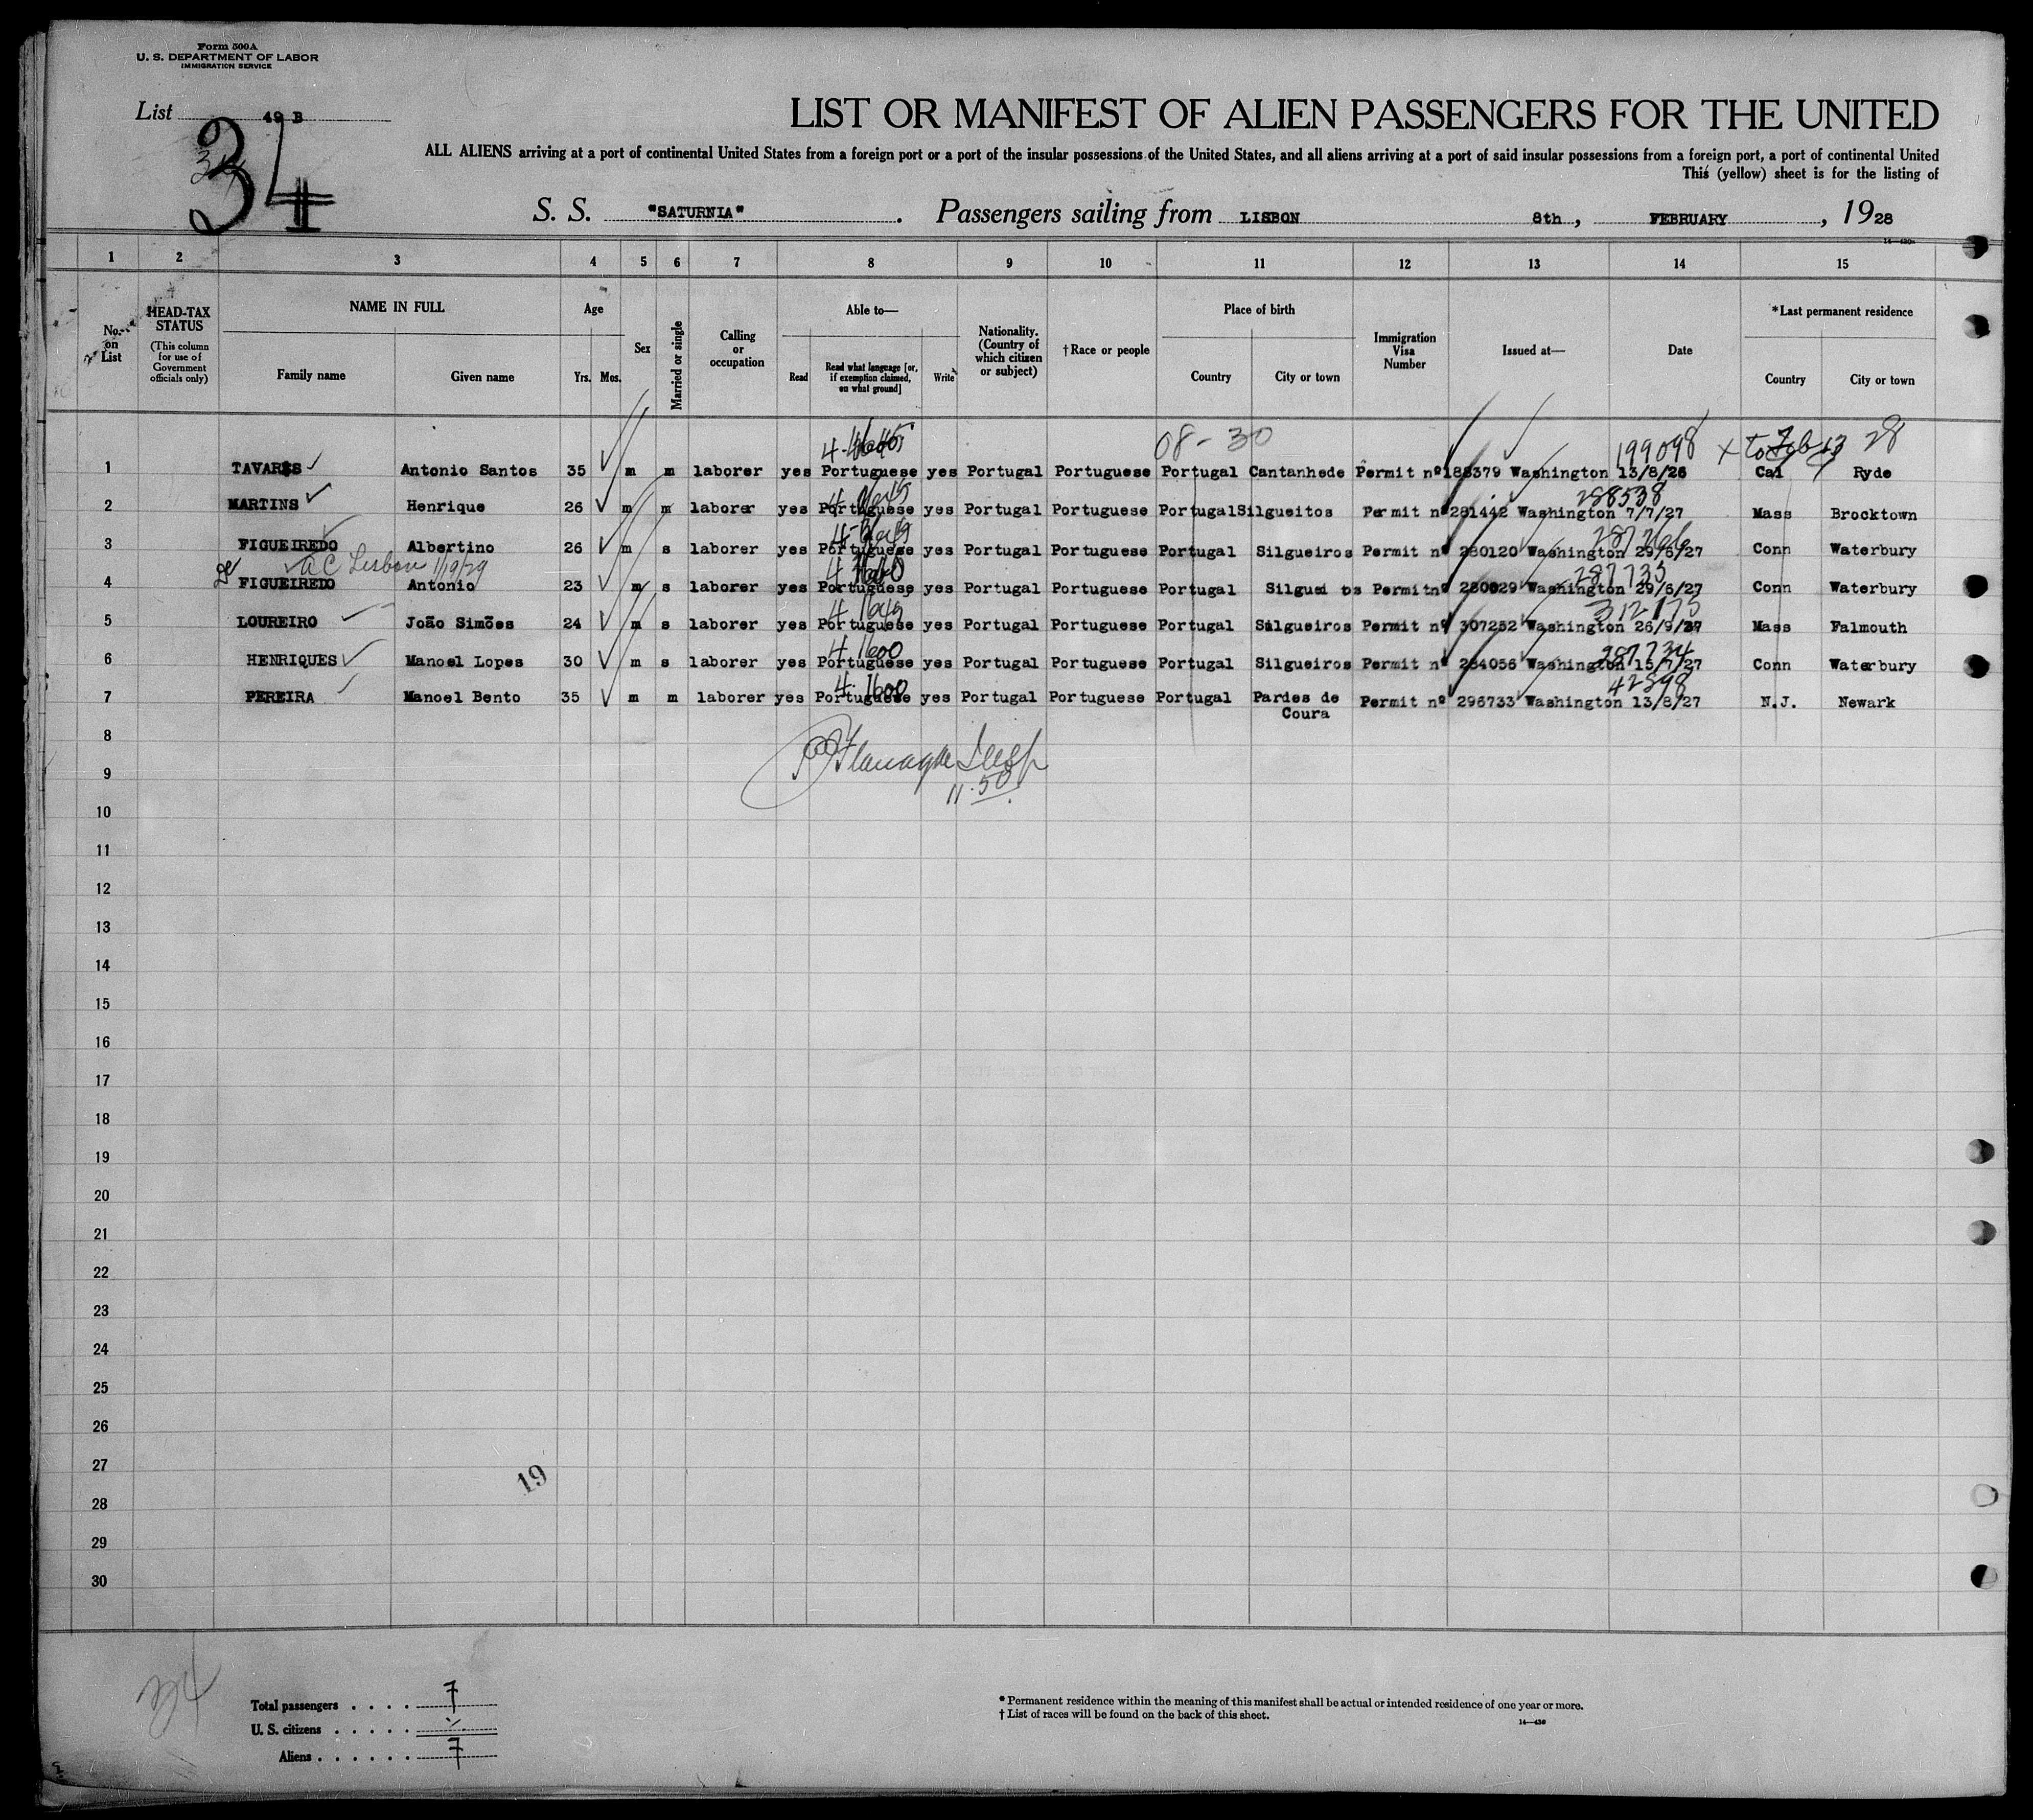 Form 500A
U. S. DEPARTMENT OF LABOR
IMMIGRATION SERVICE
List 49 B
34
LIST OR MANIFEST OF ALIEN PASSENGERS FOR THE UNITED
ALL ALIENS arriving at a port of continental United States from a foreign port or a port of the insular possessions of the United States, and all aliens arriving at a port of said insular possessions from a foreign port, a port of continental United
This (yellow) sheet is for the listing of
S. S. "SATURNIA". Passengers sailing from LISBON 8th, FEBRUARY, 1928
1 2 3 4 5 6 7 8 9 10 11 12 13 14 15
No. on List
HEAD-TAX STATUS
(This column for use of Government officials only)
NAME IN FULL
Family name
Given name
Age
Yrs. Mos.
Sex
Married or single
Calling or occupation
Able to—
Read
Read what language [or, if exemption claimed, on what ground]
Write
Nationality. (Country of which citizen or subject)
†Race or people
Place of birth
Country
City or town
Immigration Visa Number
Issued at—
Date
*Last permanent residence
Country
City or town
08-30 199098 28
1 TAVARES Antonio Santos 35 m m laborer yes Portuguese yes Portugal Portuguese Portugal Cantanhede Permit nº 188379 Washington 13/8/26 Cal Ryde
288538
2 MARTINS Henrique 26 m m laborer yes Portuguese yes Portugal Portuguese Portugal Silgueitos Permit nº 281442 Washington 7/7/27 Mass Brocktown
3 FIGUEIREDO Albertino 26 m s laborer yes Portuguese yes Portugal Portuguese Portugal Silgueiros Permit nº 280120 Washington 29/6/27 Conn Waterbury
Lisbon 1/19/29 287735
4 FIGUEIREDO Antonio 23 m s laborer yes Portuguese yes Portugal Portuguese Portugal Silguei os Permit nº Washington 29/6/27 Conn Waterbury
312175
5 LOUREIRO João Simões 24 m s laborer yes Portuguese yes Portugal Portuguese Portugal Silgueiros Permit nº 307252 Washington 26/9/27 Mass Falmouth
4 1600 287734
6 HENRIQUES Manoel Lopes 30 m s laborer yes Portuguese yes Portugal Portuguese Portugal Silgueiros Permit nº 284056 Washington 15/7/27 Conn Waterbury
4. 1600 42898
7 PEREIRA Manoel Bento 35 m m laborer yes Portuguese yes Portugal Portuguese Portugal Pardes de Coura Permit nº 296733 Washington 13/8/27 N.J. Newark
8
9
11.50
10
11
12
13
14
15
16
17
18
19
20
21
22
23
24
25
26
27
19
28
29
30
34
Total passengers . . . . 7
U. S. citizens . . . . .
Aliens . . . . . . 7
* Permanent residence within the meaning of this manifest shall be actual or intended residence of one year or more.
† List of races will be found on the back of this sheet.
14—430